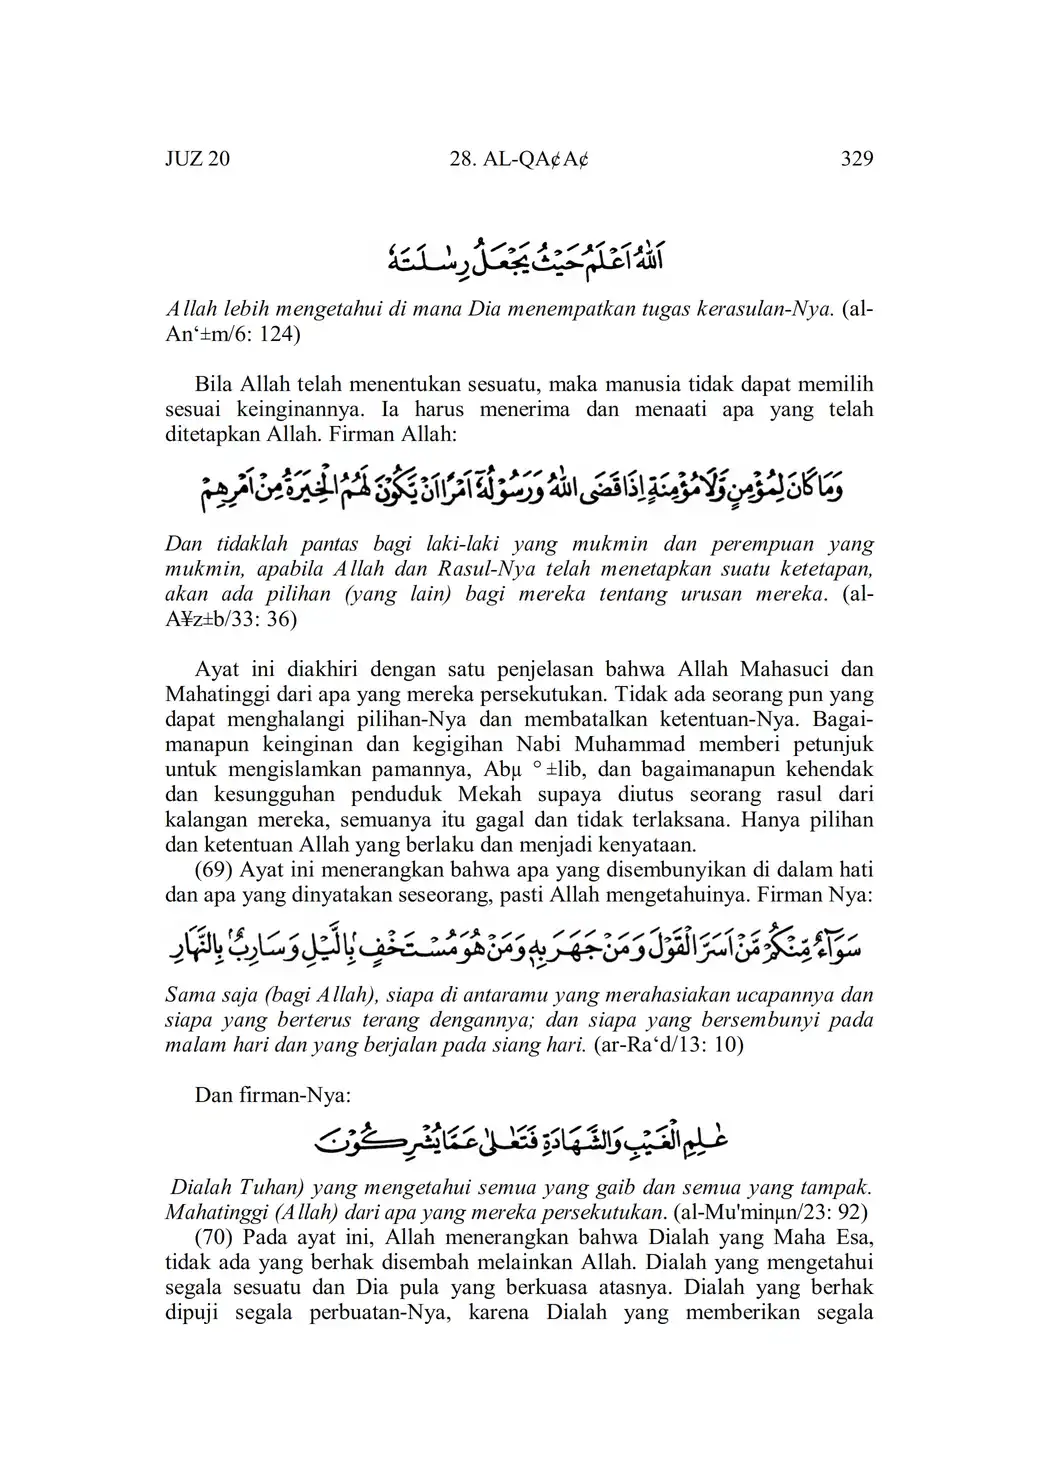 JUZ 20 28. AL-QA¢A¢ 329
اَللّٰهُ اَعْلَمُ حَيْثُ يَجْعَلُ رِسٰلَتَهٗ
Allah lebih mengetahui di mana Dia menempatkan tugas kerasulan-Nya. (al-
An‘±m/6: 124)
Bila Allah telah menentukan sesuatu, maka manusia tidak dapat memilih
sesuai keinginannya. Ia harus menerima dan menaati apa yang telah
ditetapkan Allah. Firman Allah:
وَمَا كَانَ لِمُؤْمِنٍ وَّلَا مُؤْمِنَةٍ اِذَا قَضَى اللّٰهُ وَرَسُوْلُهٗٓ اَمْرًا اَنْ يَّكُوْنَ لَهُمُ الْخِيَرَةُ مِنْ اَمْرِهِمْ
Dan tidaklah pantas bagi laki-laki yang mukmin dan perempuan yang
mukmin, apabila Allah dan Rasul-Nya telah menetapkan suatu ketetapan,
akan ada pilihan (yang lain) bagi mereka tentang urusan mereka. (al-
A¥z±b/33: 36)
Ayat ini diakhiri dengan satu penjelasan bahwa Allah Mahasuci dan
Mahatinggi dari apa yang mereka persekutukan. Tidak ada seorang pun yang
dapat menghalangi pilihan-Nya dan membatalkan ketentuan-Nya. Bagai-
manapun keinginan dan kegigihan Nabi Muhammad memberi petunjuk
untuk mengislamkan pamannya, Abµ °±lib, dan bagaimanapun kehendak
dan kesungguhan penduduk Mekah supaya diutus seorang rasul dari
kalangan mereka, semuanya itu gagal dan tidak terlaksana. Hanya pilihan
dan ketentuan Allah yang berlaku dan menjadi kenyataan.
(69) Ayat ini menerangkan bahwa apa yang disembunyikan di dalam hati
dan apa yang dinyatakan seseorang, pasti Allah mengetahuinya. Firman Nya:
سَوَاۤءٌ مِّنْكُمْ مَّنْ اَسَرَّ الْقَوْلَ وَمَنْ جَهَرَ بِهٖ وَمَنْ هُوَ مُسْتَخْفٍۢ بِالَّيْلِ وَسَارِبٌۢ بِالنَّهَارِ
Sama saja (bagi Allah), siapa di antaramu yang merahasiakan ucapannya dan
siapa yang berterus terang dengannya; dan siapa yang bersembunyi pada
malam hari dan yang berjalan pada siang hari. (ar-Ra‘d/13: 10)
Dan firman-Nya:
عٰلِمِ الْغَيْبِ وَالشَّهَادَةِ فَتَعٰلٰى عَمَّا يُشْرِكُوْنَ
Dialah Tuhan) yang mengetahui semua yang gaib dan semua yang tampak.
Mahatinggi (Allah) dari apa yang mereka persekutukan. (al-Mu'minµn/23: 92)
(70) Pada ayat ini, Allah menerangkan bahwa Dialah yang Maha Esa,
tidak ada yang berhak disembah melainkan Allah. Dialah yang mengetahui
segala sesuatu dan Dia pula yang berkuasa atasnya. Dialah yang berhak
dipuji segala perbuatan-Nya, karena Dialah yang memberikan segala